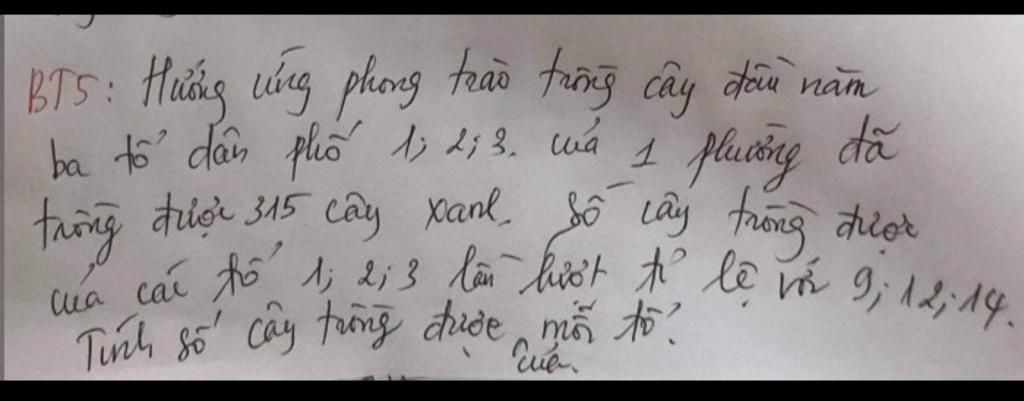 BT5: Hưởng ứng phong trào trồng cây đầu năm
ba tổ dân phố 1; 2; 3. của 1 phường đã
trồng được 315 cây xanh. Số cây trồng được
của các tổ 1; 2; 3 lần lượt tỉ lệ với 9; 12; 14.
Tính số cây trồng được của mỗi tổ?